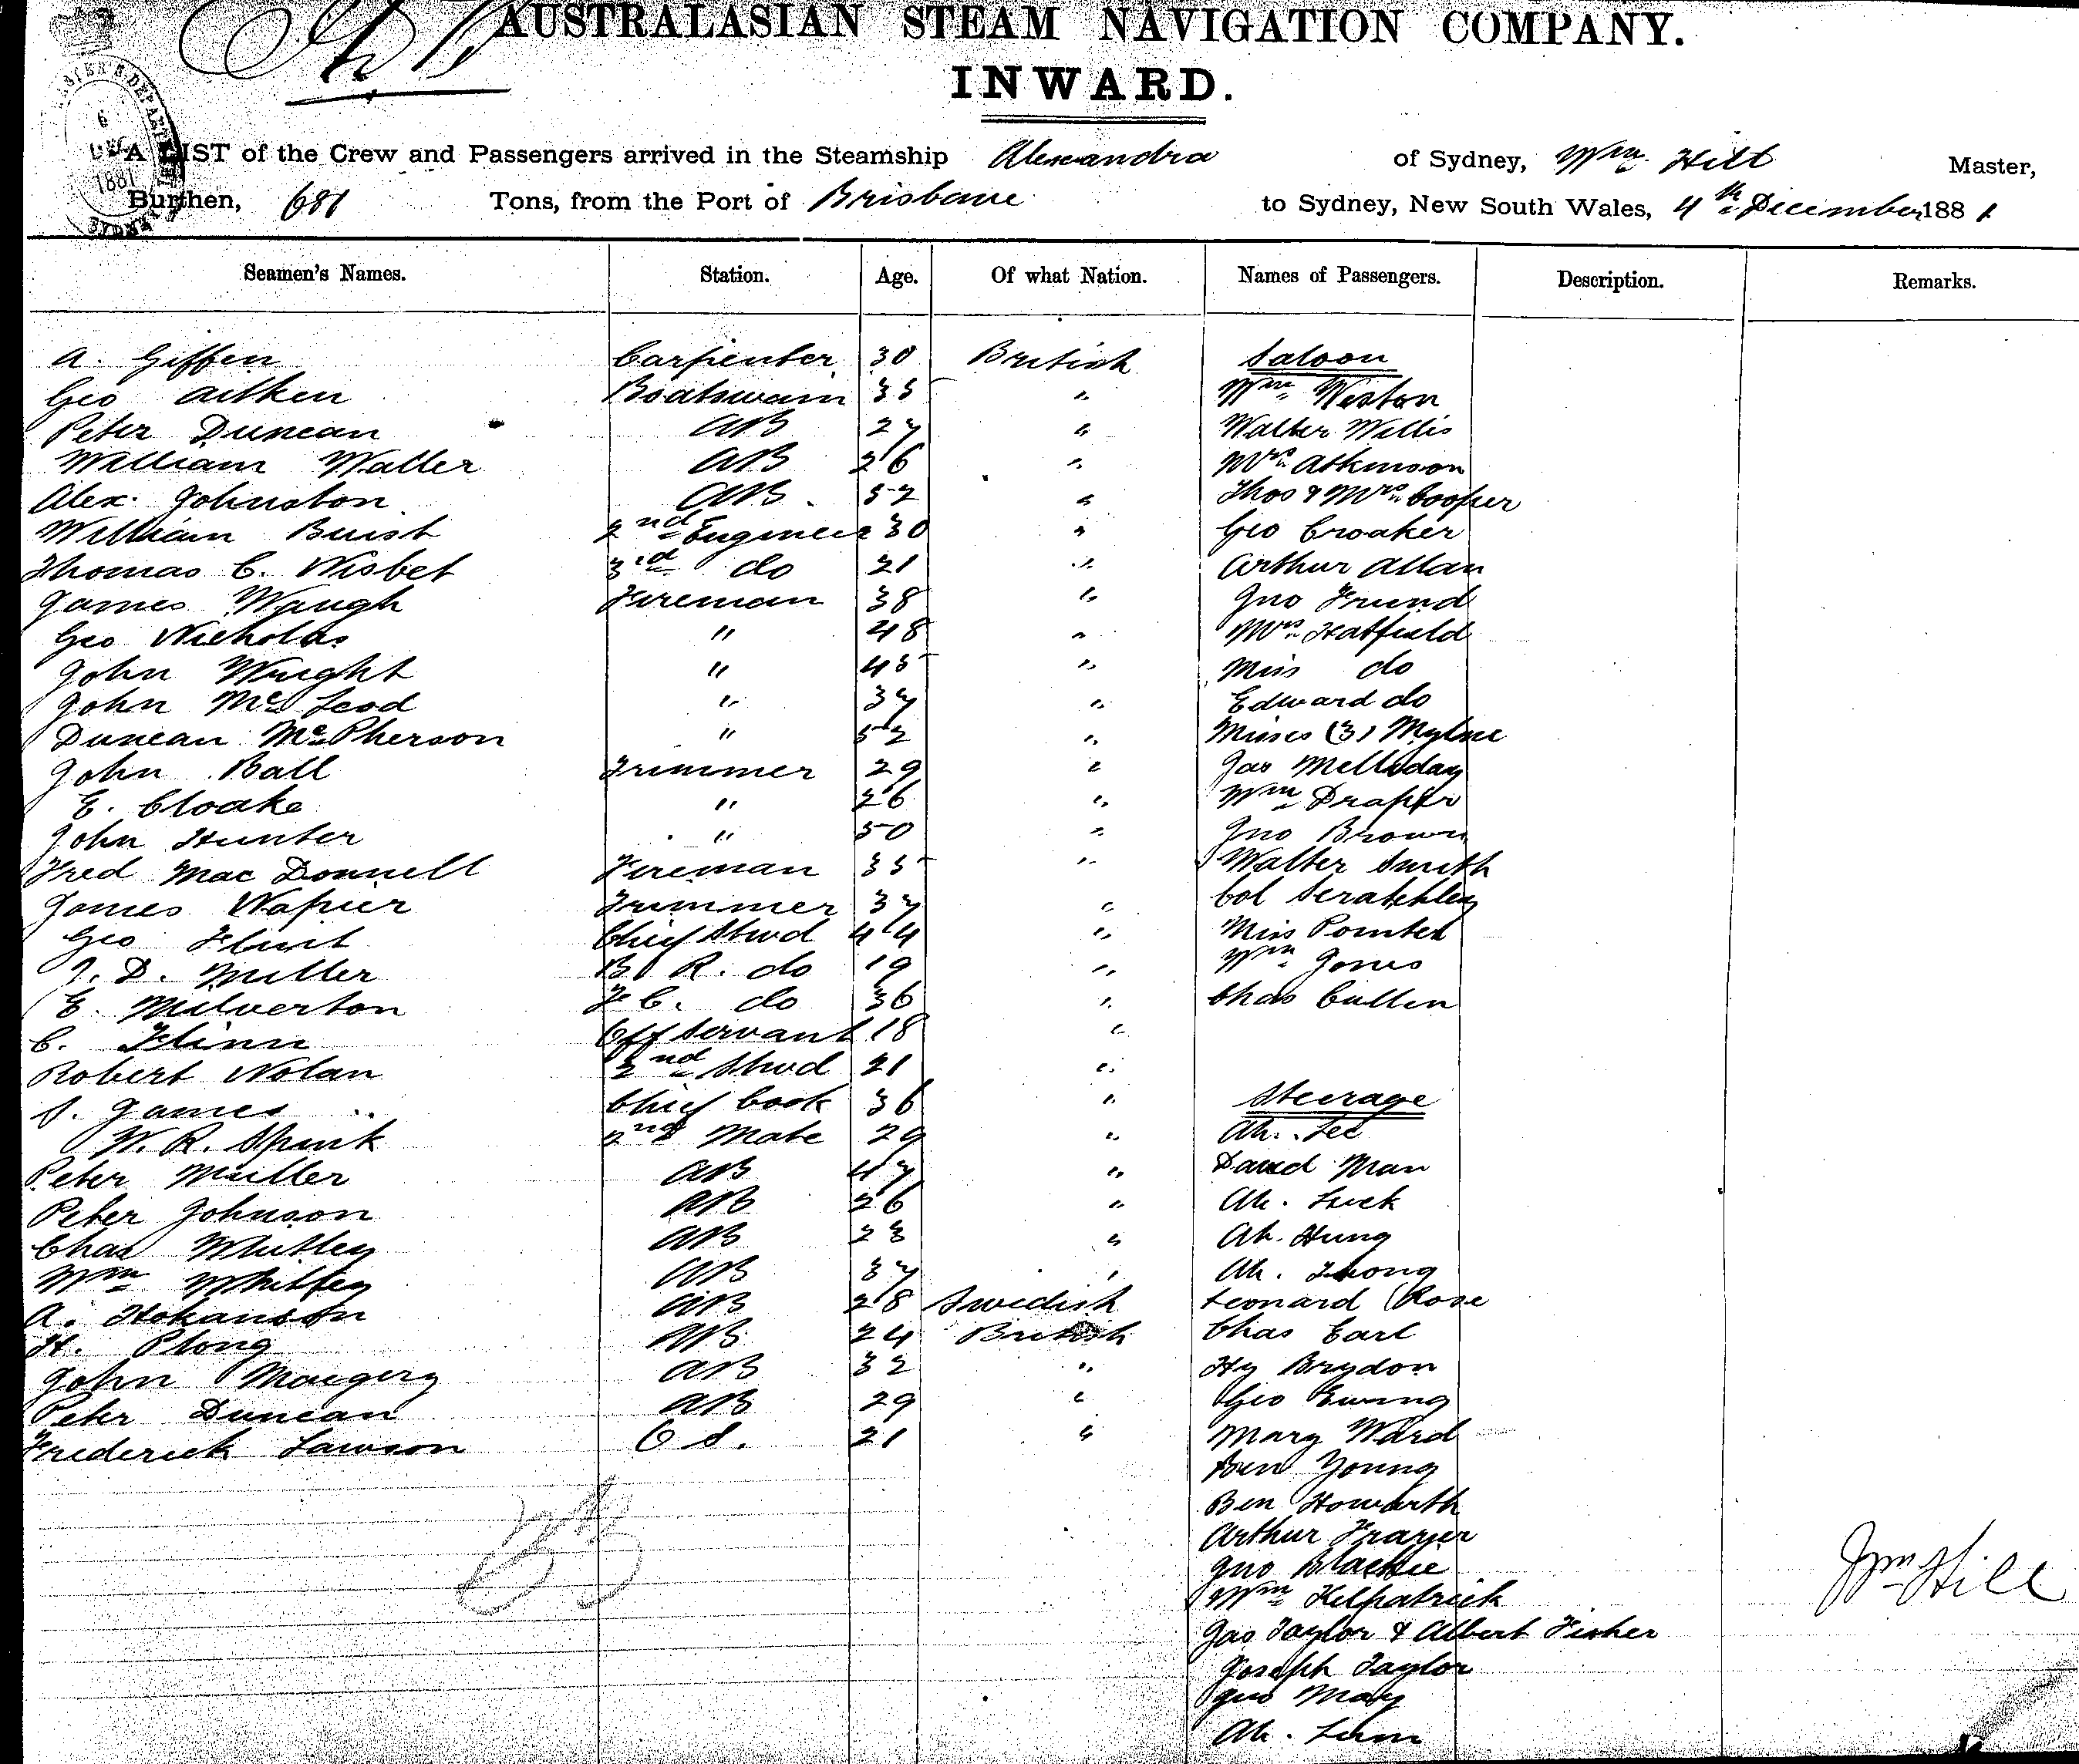 AUSTRALASIAN STEAM NAVIGATION COMPANY.
INWARD.
6
DEC
1881
A LIST of the Crew and Passengers arrived in the Steamship Alexandra of Sydney, Wm Hill Master,
Burthen, 681 Tons, from the Port of Brisbane to Sydney, New South Wales, 4th December 1881
Seamen's Names. Station. Age. Of what Nation. Names of Passengers. Description. Remarks.
A. Giffen Carpenter 30 British Saloon
Geo Aitken Boatswain 35 " Wm Weston
Peter Duncan AB 27 " Walter Willis
William Waller AB 26 " Mrs Atkinson
Alex. Johnston AB 52 " Thos & Mrs Cooper
William Buist 2nd Engineer 30 " Geo Croaker
Thomas C. Nisbet 3rd do 21 " Arthur Allan
James Waugh Fireman 38 " Jno Friend
Geo Nicholas " 48 " Mrs Hatfield
John Wright " 45 " Miss do
John McLeod " 37 " Edward do
Duncan McPherson " 52 " Misses (3) Mylne
John Ball Trimmer 29 " Jas Melliday
E. Cloake " 26 " Wm Draper
John Hunter " 50 " Jno Brown
Fred Mac Donnell Fireman 35 " Walter Smith
James Napier Trimmer 37 " Col Scratchley
Geo Flint Chief Stwd 44 " Miss Pointed
J. D. Miller B R. do 19 " Wm Jones
E. Milverton F C. do 36 " Chas Cullen
C. Flinn Off Servant 18 "
Robert Nolan 2nd Stwd 21 "
S. James Chief Cook 36 " Steerage
W. R. Spink 2nd Mate 29 " Ah. Lee
Peter Muller AB 47 " David Man
Peter Johnson AB 26 " Ah. Luck
Chas Whitley AB 23 " Ah. Hung
Wm Whitley AB 37 " Ah. Thong
A. Hokanson AB 28 Swedish Leonard Rose
H. Plong AB 24 British Chas Earl
John Maugery AB 32 " Hy Brydon
Peter Duncan AB 29 " Geo Ewing
Frederick Lawson O S. 21 " Mary Ward
Ben Young
Ben Howarth
Arthur Frazier
Jno Blackie
Wm Kilpatrick
Wm Hill
Jas Taylor & Albert Fisher
Joseph Taylor
Jno May
Ah. Lum